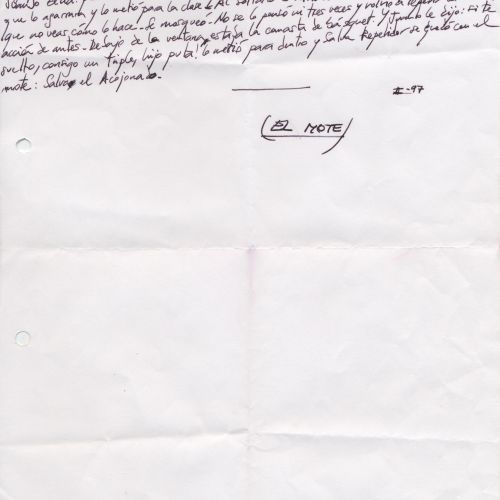 que lo agarraran y lo metió para la clase
que no veas cómo lo hace - él mosqueó. No se lo pensó ni tres veces y volvió a repetir la
acción de antes. Debajo de la ventana estaba la canasta de básquet. Y Juanito le dijo: si te
suelto, consigo un triple, hijo puta! lo metió para dentro y Salva Repetidor se quedó con el
mote: Salva el Acojonado.
II-97
(EL MOTE)